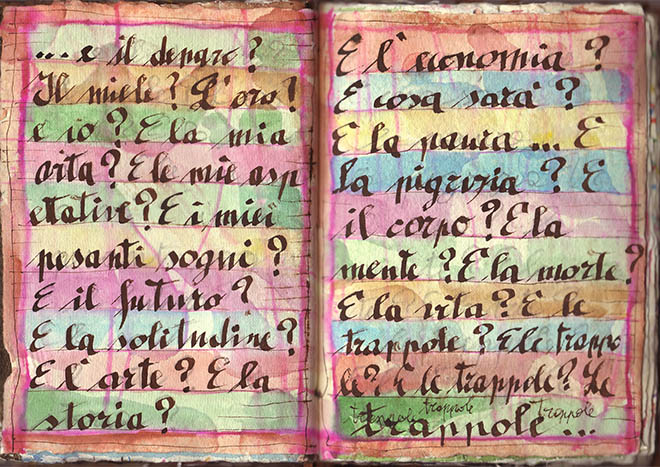 ... e il denaro?
Il miele? L'oro?
e io? E la mia
vita? E le mie asp
ettative? E i miei
pesanti sogni?
E il futuro?
E la solitudine?
E l'arte? E la
storia?
E l'economia?
E cosa sarà?
E la paura ... E
la pigrizia? E
il corpo? E la
mente? E la morte?
E la vita? E le
trappole? E le trappo
le? E le trappole? Le
trappole trappole trappole
trappole ...